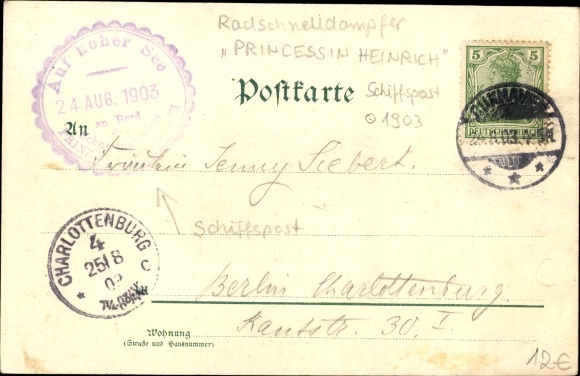 Radschnelldampfer
„PRINCESSIN HEINRICH"
Auf hoher See
24 AUG. 1903
an Bord
Postkarte
Schiffspost
1903
5
DEUTSCHES REICH
An
Fräulein Jenny Siebert.
Schiffspost
CHARLOTTENBURG
4
25/8
C
Berlin Charlottenburg.
Kantstr. 30. I.
Wohnung
(Straße und Hausnummer)
12€